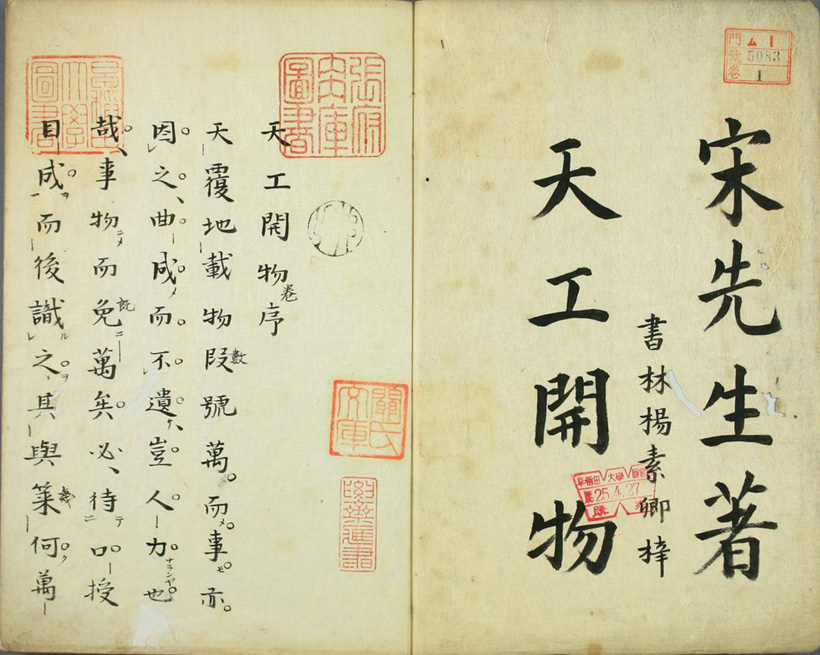 門 ム1
號 5083
卷 1
宋先生著
書林楊素卿梓
天工開物
25.4.27
天工開物卷序
天覆地載物叚數號萬而事亦
因之曲成而不遺豈人力也
哉事物而免萬矣必待口授
目成而後識之其與筭幾何萬